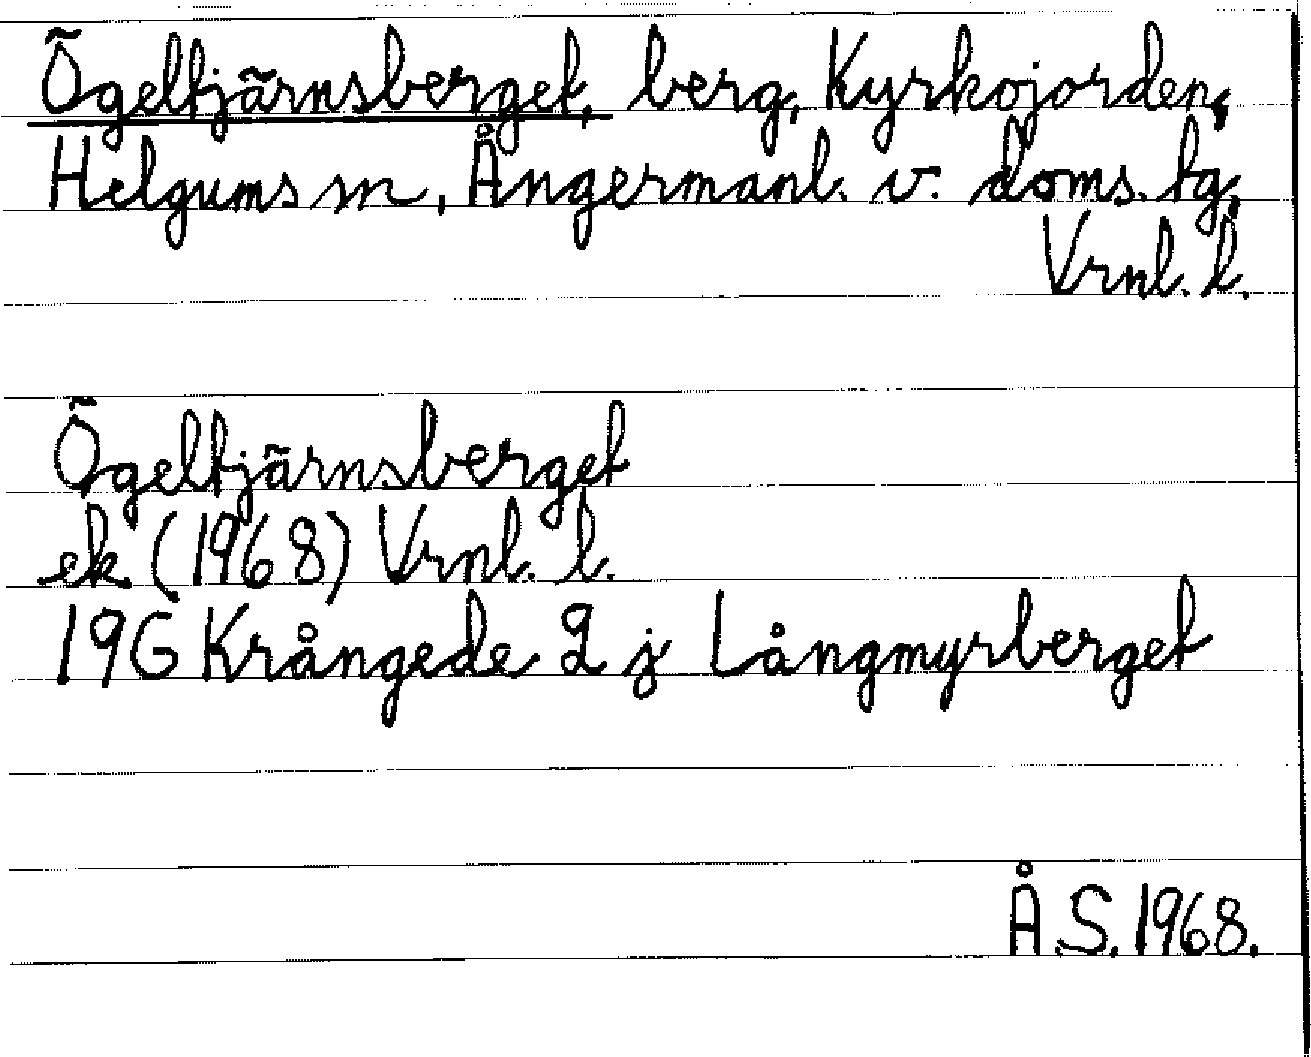 Ögeltjärnsberget, berg, Kyrkojorden,
Helgums sn, Ångermanl. v. doms. tg,
Vrnl. l.
Ögeltjärnsberget
ek (1968) Vrnl. l.
19G Krångede 2 j Långmyrberget
Å.S. 1968.